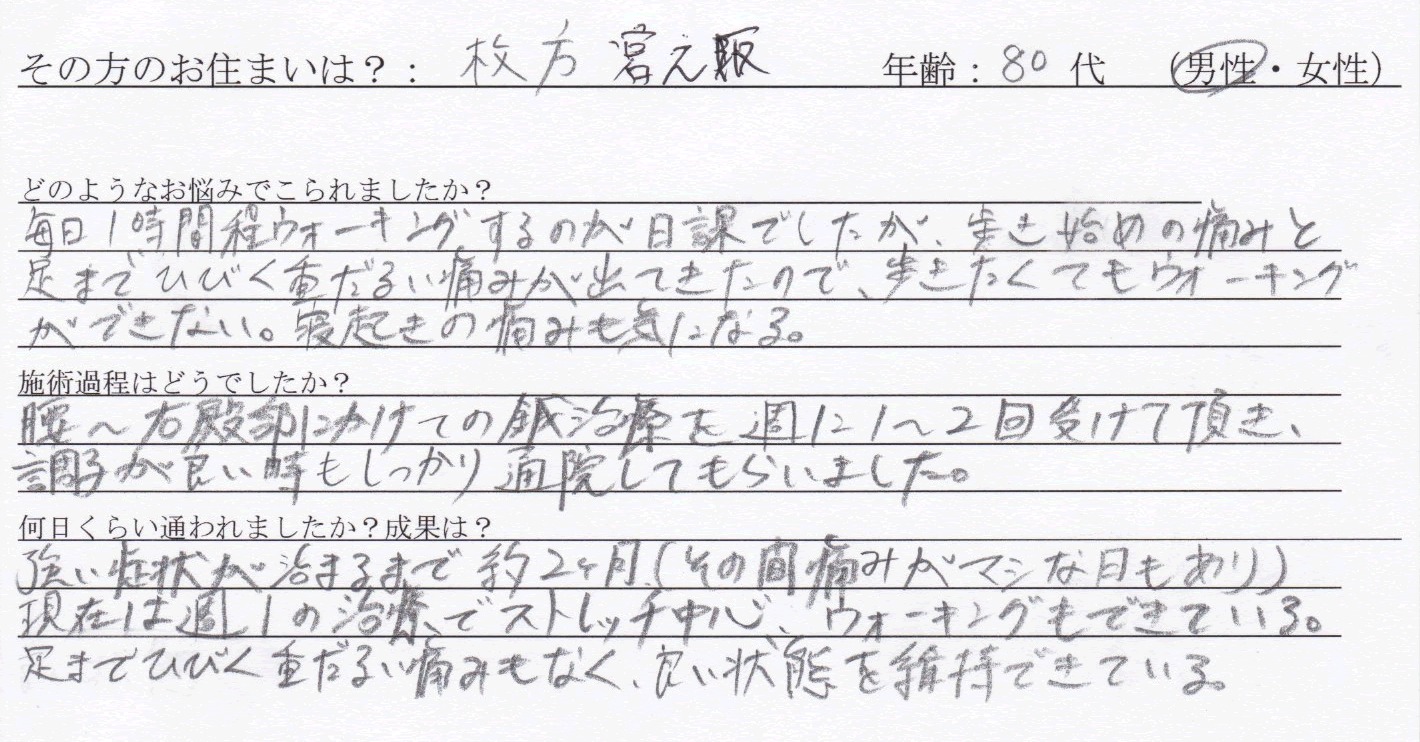 その方のお住まいは？： 枚方 年齢：80代 （男性・女性）
どのようなお悩みでこられましたか？
毎日1時間程ウォーキングするのが日課でしたが、歩き始めの痛みと
足までひびく重だるい痛みが出てきたので、歩きたくてもウォーキング
ができない。寝起きの痛みも気になる。
施術過程はどうでしたか？
腰～右殿部にかけての鍼治療を週に1～2回受けて頂き、
調子が良い時もしっかり通院してもらいました。
何日くらい通われましたか？成果は？
強い症状が治まるまで約2ヶ月（その間痛みがマシな日もあり）
現在は週1の治療でストレッチ中心、ウォーキングもできている。
足までひびく重だるい痛みもなく、良い状態を維持できている。